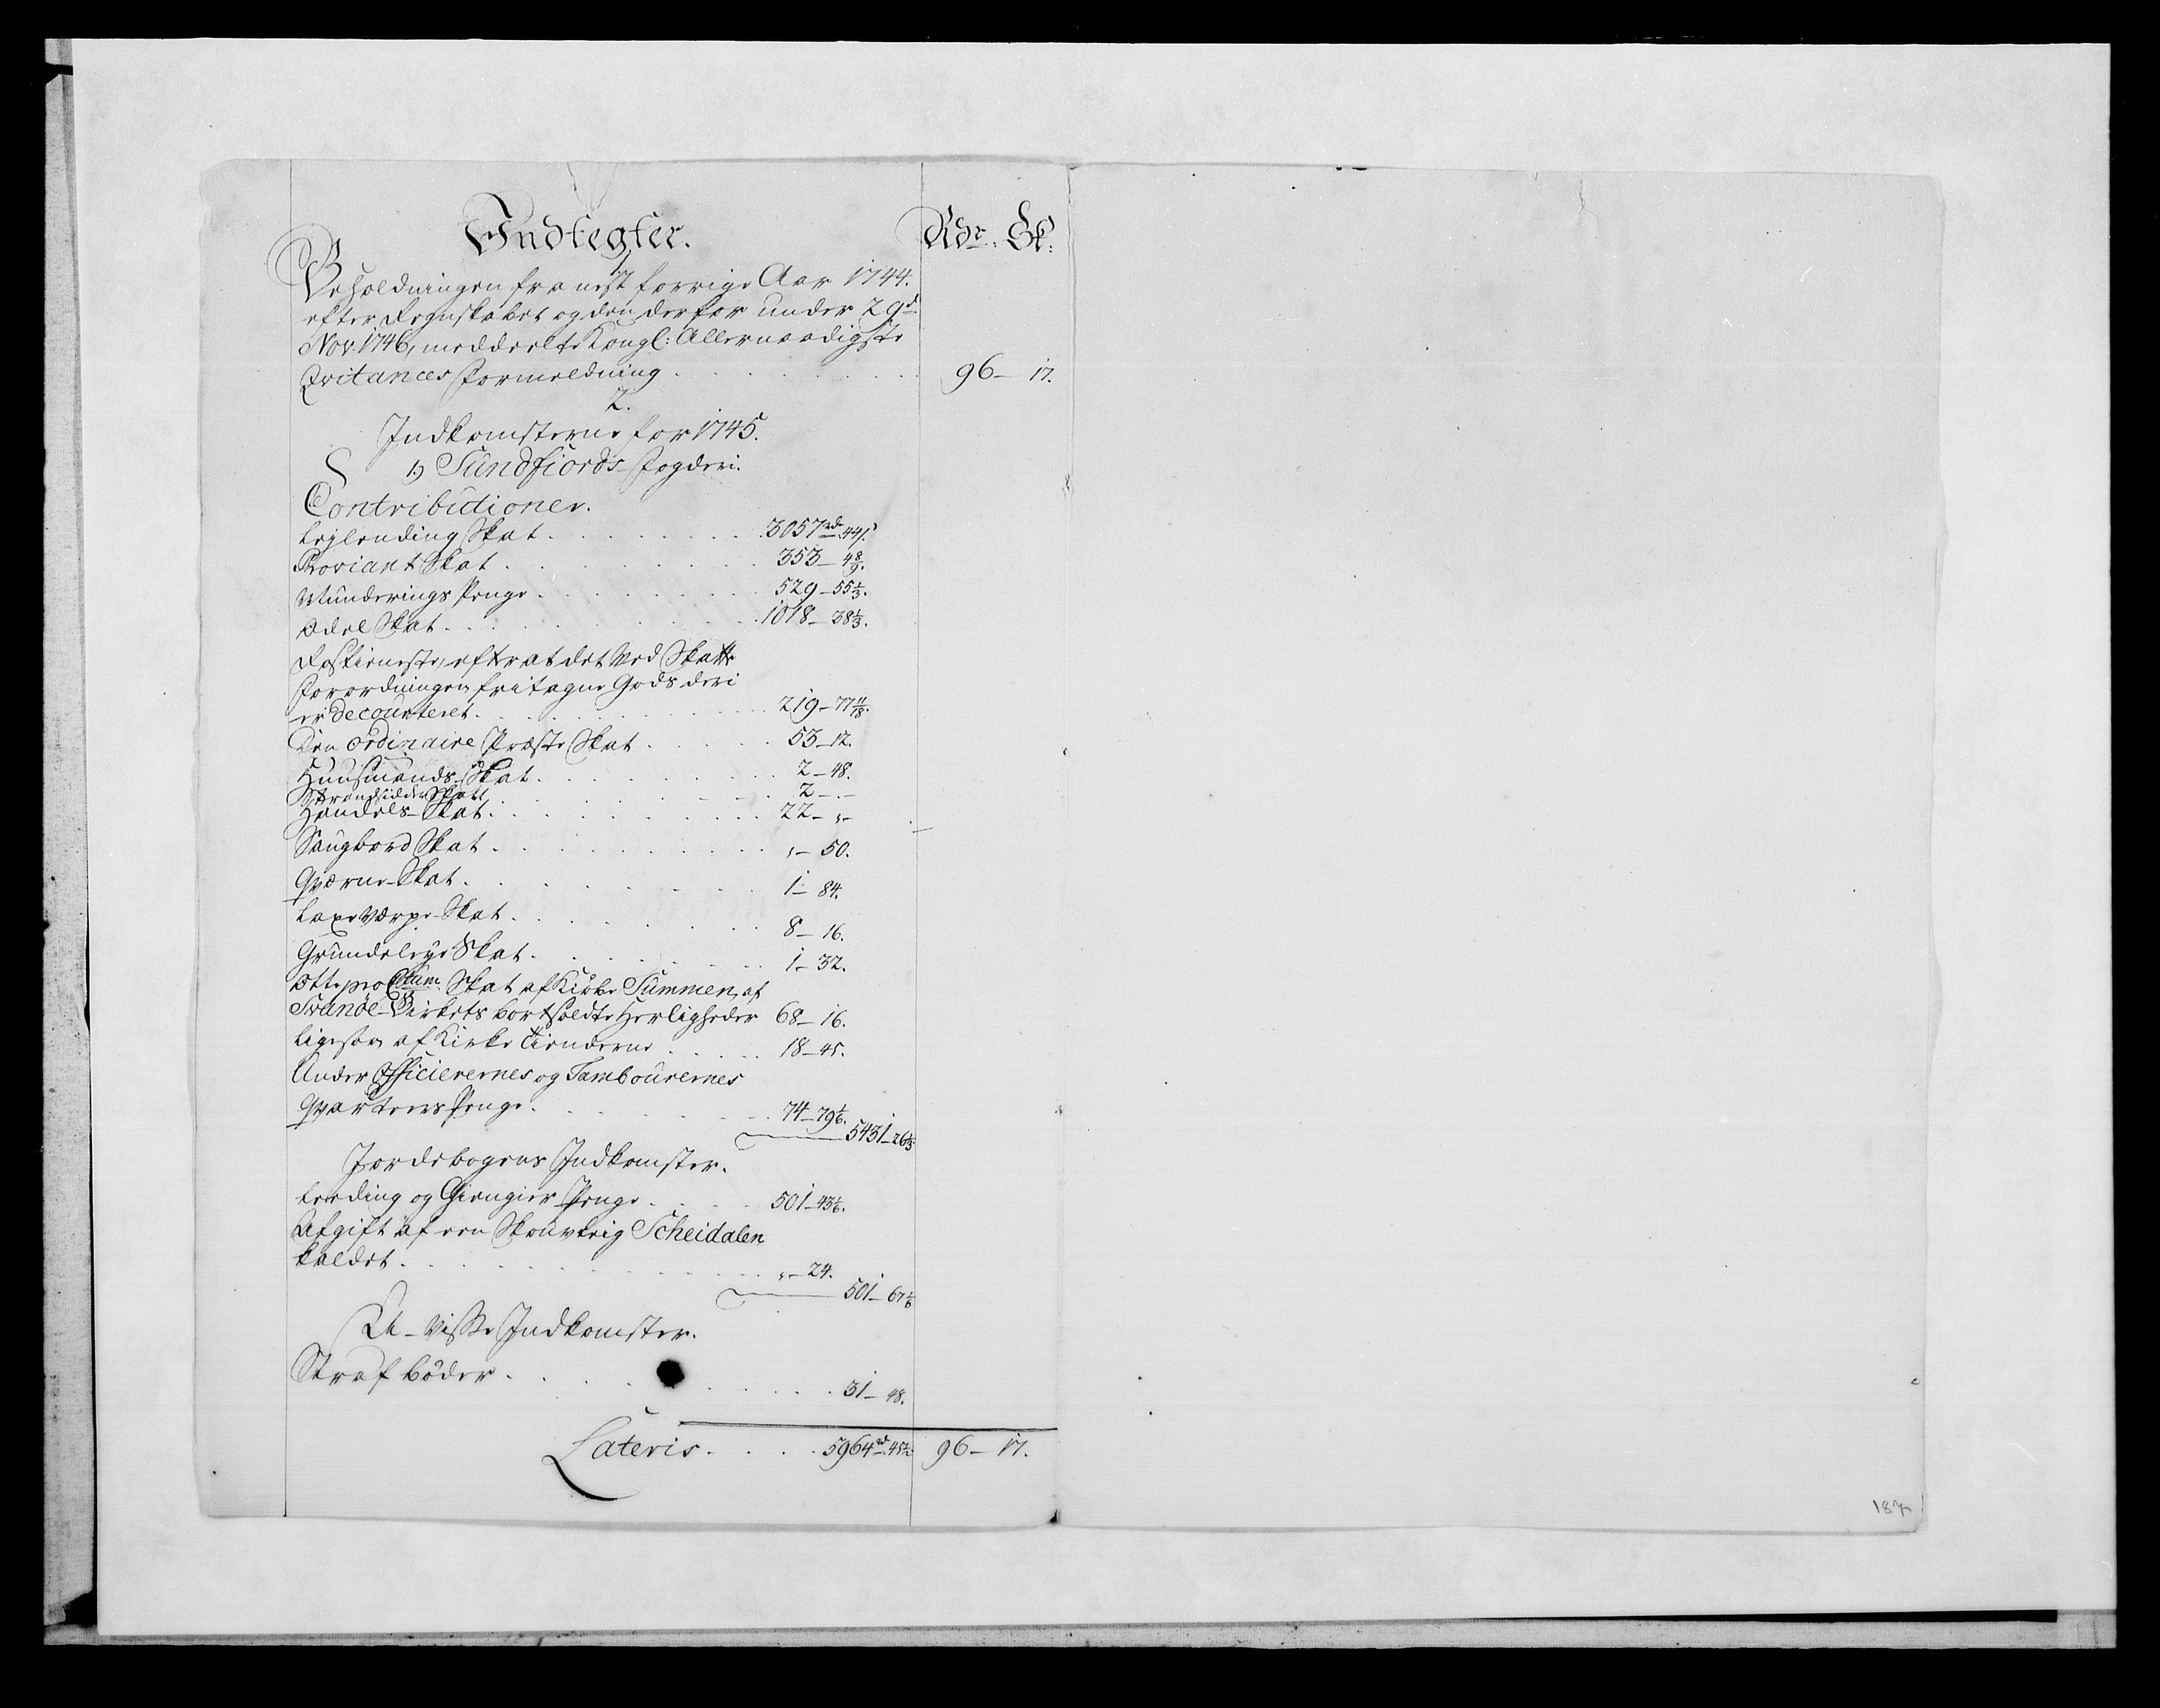 Indtegter. Rdr. Sk:
1.
Beholdningen fra nest forrige Aar 1744.
efter Regnskabet og den derfor under 29d
Nov. 1746, meddeelte Kongl: Allernaadigste
Qvitances Formelding . . . 96 – 17.
2.
Indkomsterne for 1745.
1) Sundfiords Fogderi.
Contributioner.
Leylending Skat . . . 3057rd. 44s.
Proviant Skat . . . 353 – 4 8/9.
Munderings Penge . . . 529 – 55 1/3.
Odel Skat . . . 1018 – 38 1/3.
Rostieneste, efter at det ved Skatte
Forordningen fritagne Gods deri
er decourteret . . . 219 – 77 11/18.
Den ordinaire Præste Skat . . . 53 – 12.
Huusmands Skat . . . 2 – 48.
Strandsidder Skatt . . . 2 – . –
Handels-Skat . . . 22 – „ –
Saugbord Skat . . . „ – 50.
Qværne-Skat . . . 1 – 84.
Laxe Værpe-Skat . . . 8 – 16.
Grundeleye Skat . . . 1 – 32.
Otte pro Centum Skat af Kiøbe Summen, af
Svanöe-Birkets bortsoldte Herligheder 68 – 16.
Ligesom af Kirke Tienderne . . . 18 – 45.
Under Officierernes og Tambourernes
Qvarteers Penge . . . 74 – 79 1/6.
5431 – 26 1/3.
Jordebogens Indkomster.
Leeding og Giengier Penge . . . 501 – 43 1/6.
Afgift af een Skouvteig Scheidalen
kaldet . . . „ – 24.
501 – 67 1/6
U-visse Indkomster.
Straf bøder . . . 31 – 48.
Lateris . . . 5964rd. 45 1/2 96 – 17.
187